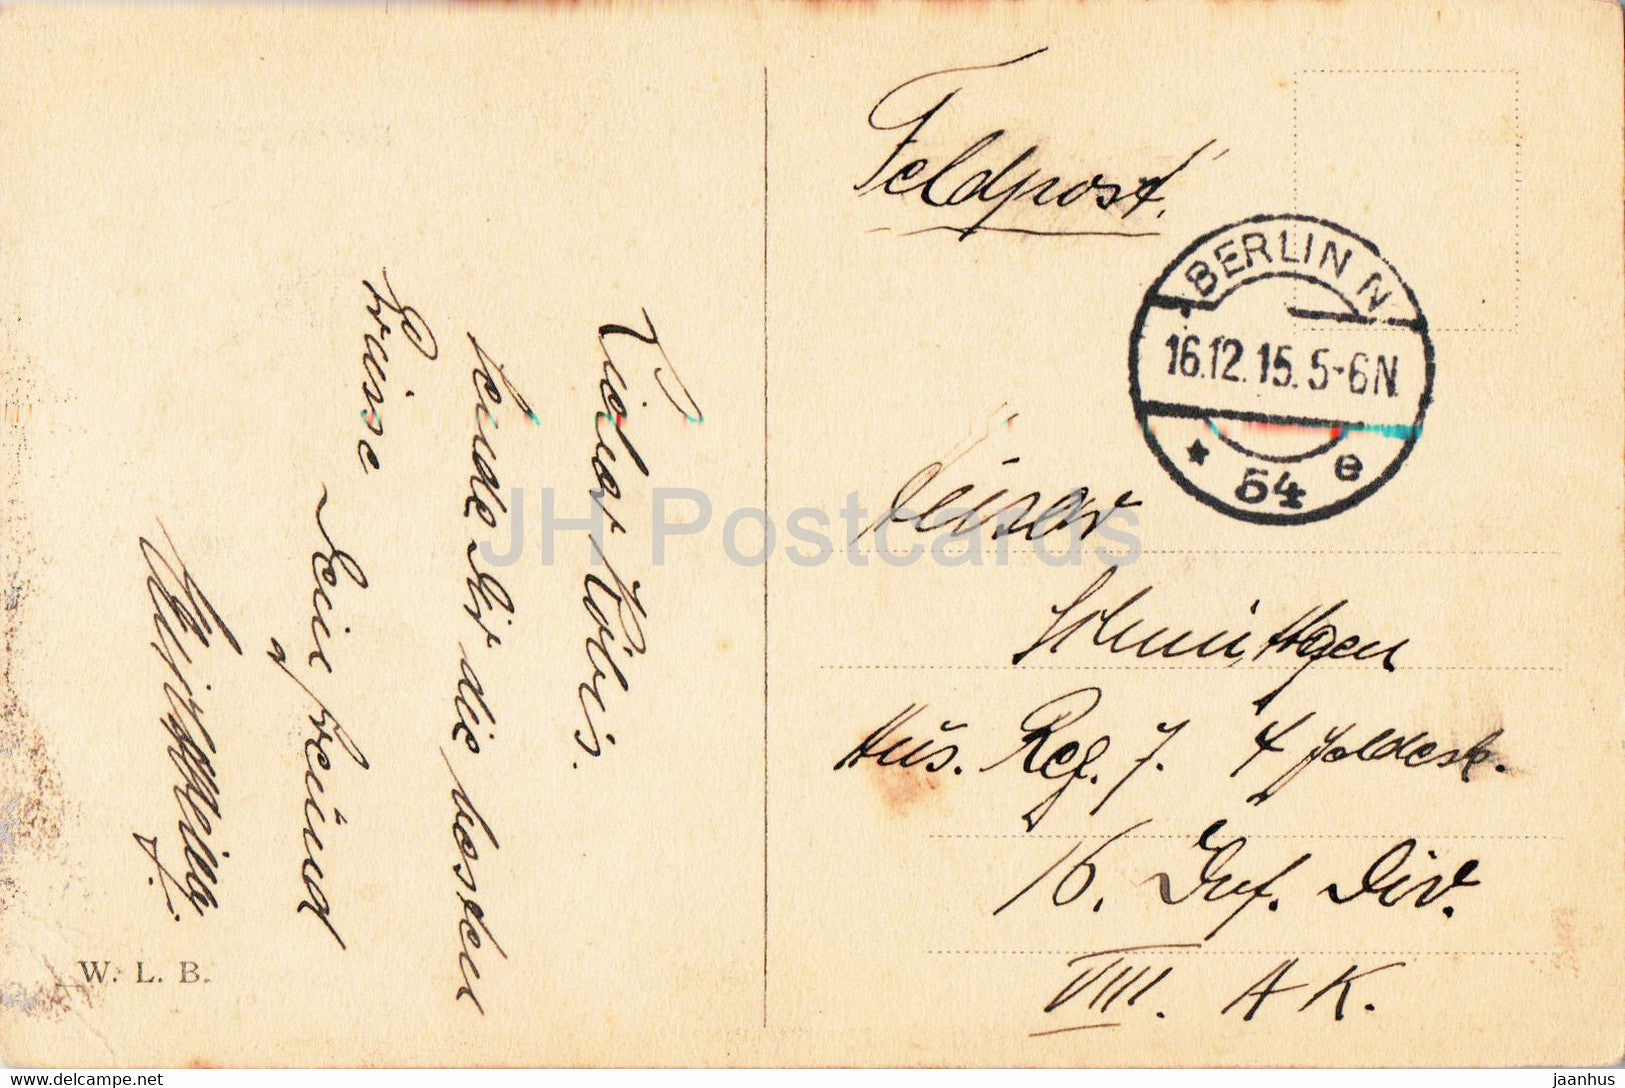 Feldpost.
BERLIN N
16.12.15. 5-6N
* 54 e
Lieber Tobis.
sende Dir die besten
Grüsse
Dein Freund
Husar
Schmittgen
Hus. Reg. 7. 4 feldesk.
16. Inf. Div.
VIII. A K.
W. L. B.
JH Postcards
www.delcampe.net
jaanhus